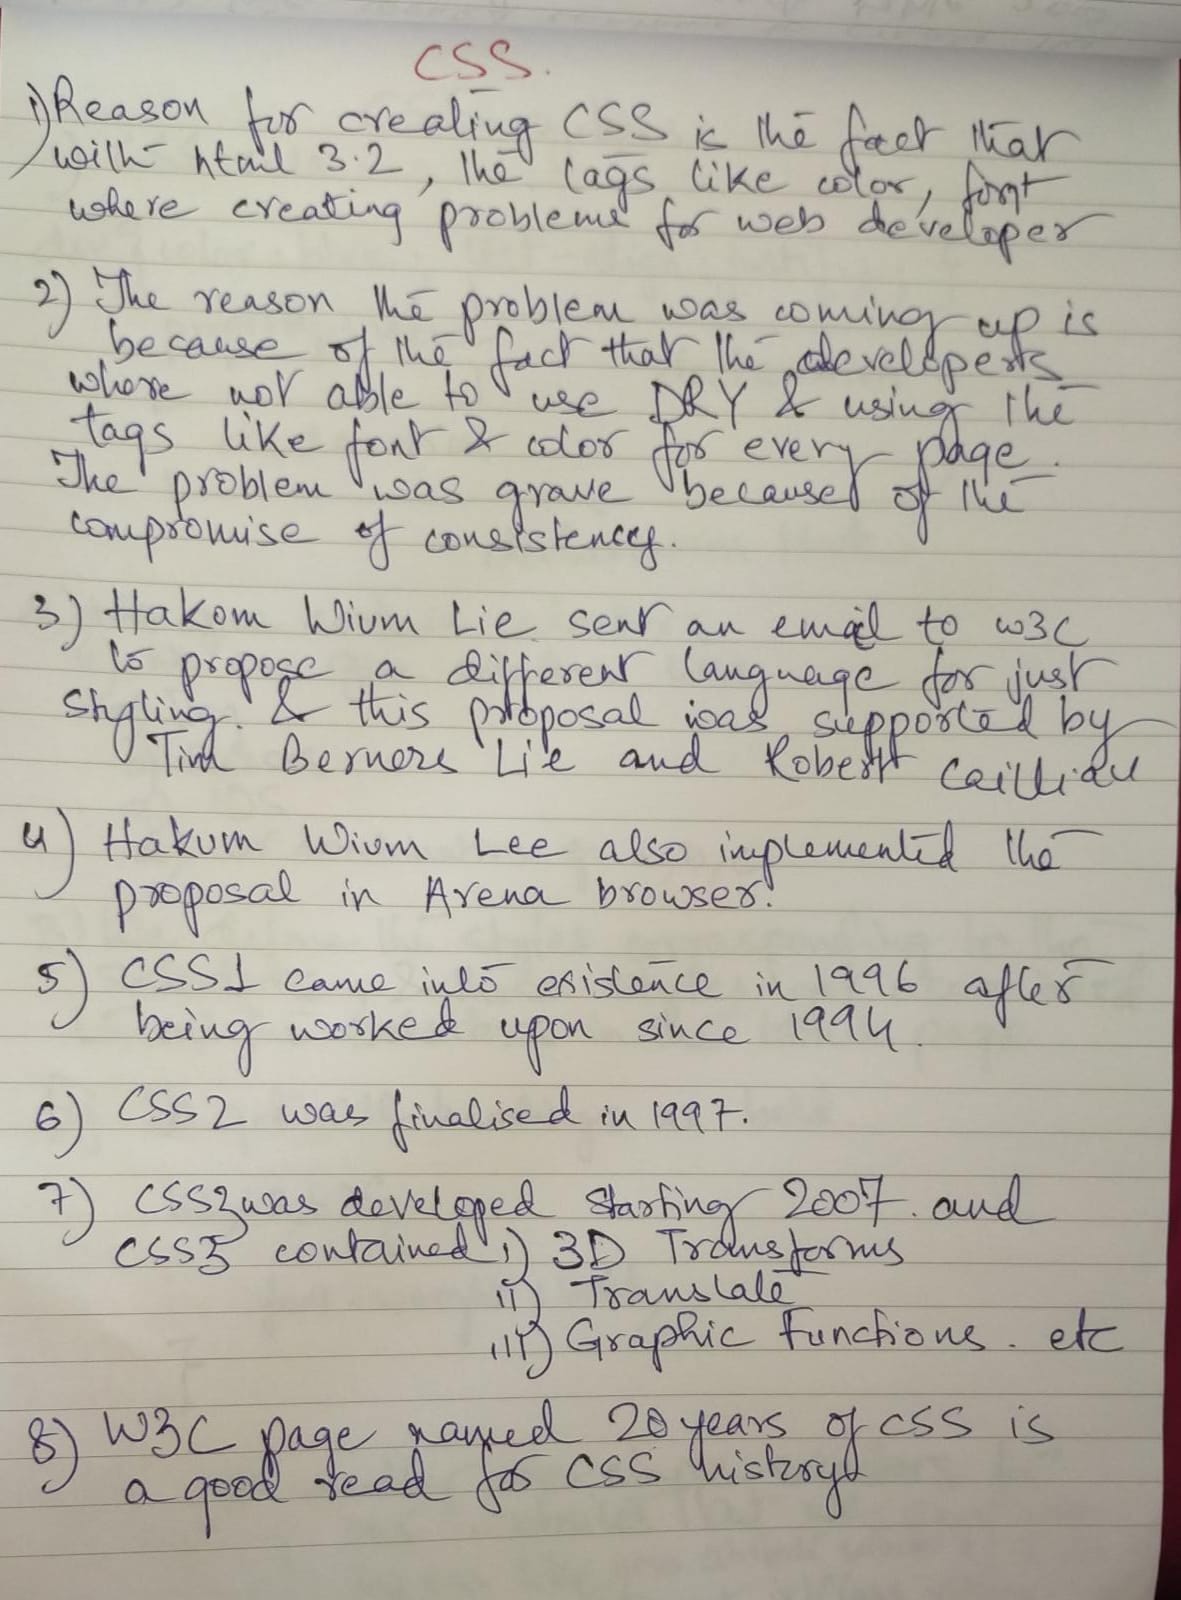 CSS.
1) Reason for creating CSS is the fact that
with html 3.2, the tags like color, font
where creating problems for web developer
2) The reason the problem was coming up is
because of the fact that the developers
where not able to use DRY & using the
tags like font & color for every page.
The problem was grave because of the
compromise of consistency.
3) Hakom Wium Lie sent an email to W3C
to propose a different language for just
Styling. & this proposal was supported by
Tim Berners Lie and Robert Cailliau
4) Hakum Wium Lee also implemented the
proposal in Arena browser.
5) CSS1 came into existence in 1996 after
being worked upon since 1994.
6) CSS2 was finalised in 1997.
7) CSS3 was developed starting 2007. and
CSS3 contained i) 3D Transforms
ii) Translate
iii) Graphic Functions. etc
8) W3C page named 20 years of CSS is
a good read for CSS history